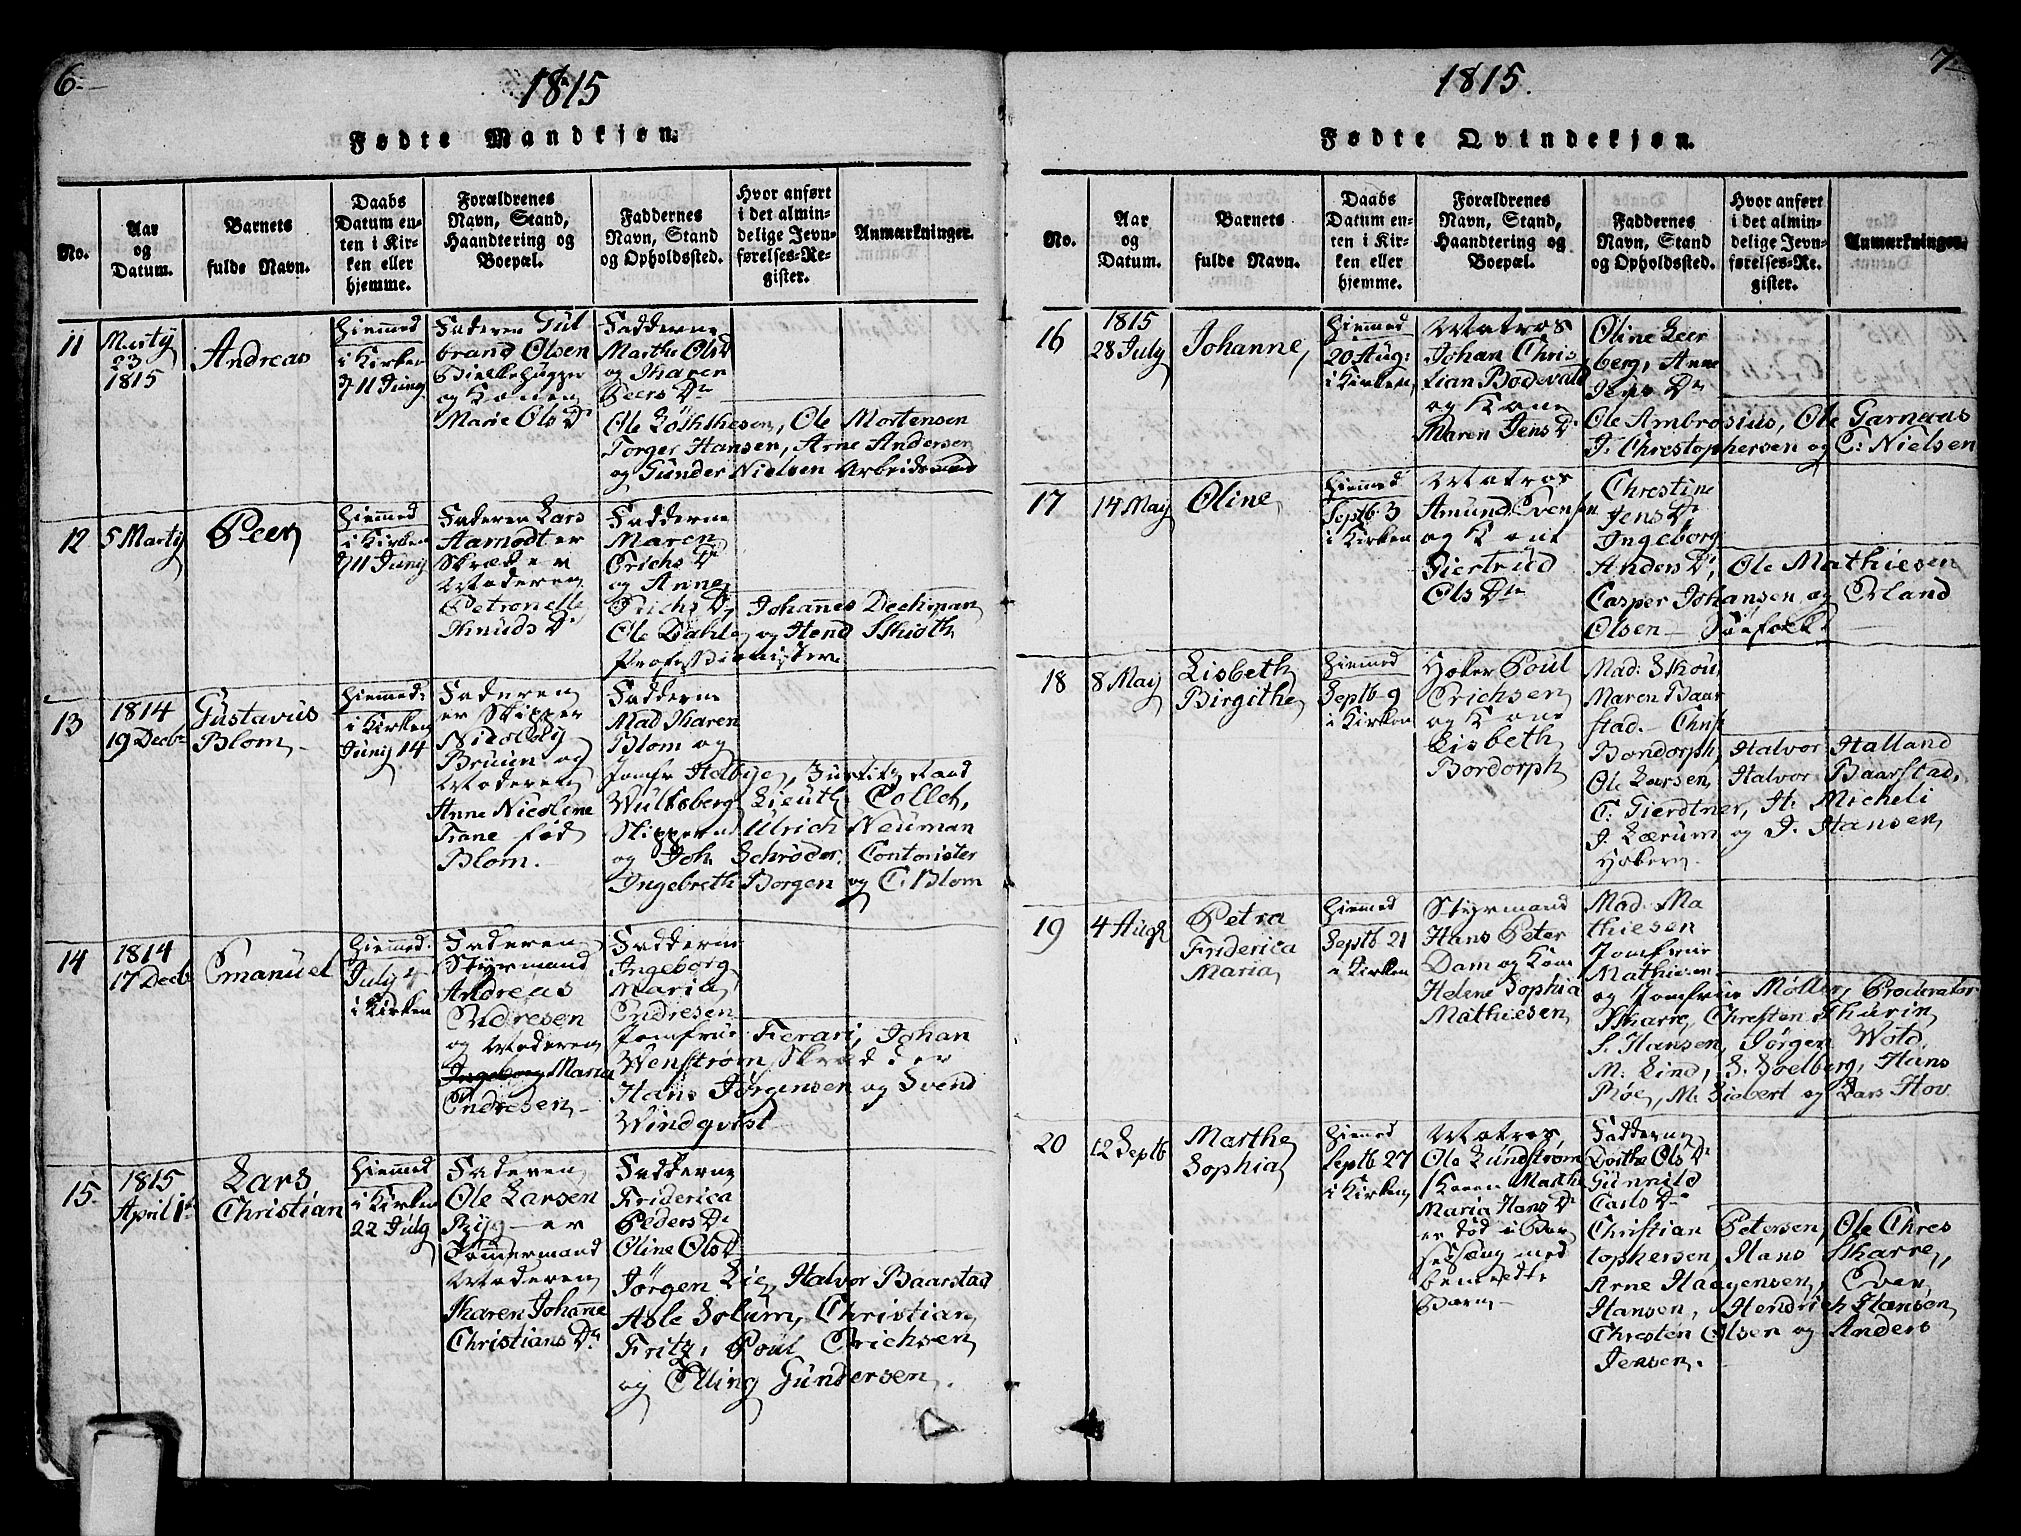 6.
1815
Fødte Mandkjøn.
No.
Aar
og
Datum.
Barnets
fulde Navn.
Daabs
Datum en-
ten i Kir-
ken eller
hjemme.
Forældrenes
Navn, Stand,
Haandtering og
Boepæl.
Faddernes
Navn, Stand
og Opholdssted.
Hvor anført
i det almin-
delige Jevn-
førelses-Re-
gister.
Anmærkninger.
11
Marty
23
1815
Andreas
Hiemmed
i Kirken
d 11 Juny
Faderen Gul
brand Olsen
Bielkehugger
og Konen
Marie Ols Dr
Fadderne
Marthe Ols Dr
og Karen
Peers Dr
Ole Mortensen
Torger Hansen, Arne Andersen
og Gunder Nielsen Arbeidsmænd
12
5 Marty
Peer
Hiemmed
i Kirken
d 11 Juny
Faderen Lars
Aamodt er
Skræder
Moderen
Petronelle
Knuds Dr
Fadderne
Maren
Erichs Dr
og Anne
Erichs Dr, Johannes Dechman
Ole Dahl og Hend Skiøth
Professionister
13
1814
19 Decbr
Gustavus
Blom
Hiemmed:
i Kirken
Juny 14
Faderen
er Skipper
Nicolay
Bruun og
Moderen
Anne Nicoline
Trane fød
Blom.
Fadderne
Mad Karen
Blom og
Jomfr Helbye,
Wulfsberg Lieuth: Collet,
Skipperne Ulrich Neuman
og Joh. Schrøder, Contorister
Ingebreth Borgen og C. Blom
14
1814
17 Decb
Emanuel
Hiemmed.
July 4
i Kirken
Faderen
Styrmand
Andreas
Endresen
og Moderen
Ingeborg Maria
Endresen
Fadderne
Ingeborg
Maria
Endresen
Jomfrue Ferrari, Johan
Wenstrøm, Skrædder
Hans Jørgensen og Svend
Windqvist
15
1815
April 1
Lars
Christian
Hiemmed
i Kirken
22 July
Faderen
Ole Larsen
Ryg er
Tømmermand
Moderen
Karen Johanne
Christians Dr
Fadderne
Friderica
Peders Dr
Oline Ols Dr
Jørgen Lie, Halvor Baarstad
Asle Solum, Christian
Fritz, Poul Erichsen
og Elling Gundersen.
7
1815.
Fødte Qvindekjøn.
No.
Aar
og
Datum.
Barnets
fulde Navn.
Daabs
Datum en-
ten i Kir-
ken eller
hjemme.
Forældrenes
Navn, Stand,
Haandtering og
Boepæl.
Faddernes
Navn, Stand
og Opholdssted.
Hvor anført
i det almin-
delige Jevn-
førelses-Re-
gister.
Anmærkninger.
16
1815
28 July
Johanne
Hiemmed
20 Aug:
i Kirken
Matros
Johan Chris
tian Bodevald
og Kone
Maren Jens Dr
Oline Leer
berg, Anne
Jens Dr
Ole Ambrosius, Ole Garnaas
J. Chrestophersen og C: Nielsen
17
14 May
Oline
Hiemmed
Septb 3
i Kirken
Matros
Amund Evensen
og Kone
Siertrud
Ols Dtr
Chrestine
Jens Dr
Ingeborg
Anders Dr, Ole Mathiesen
Casper Johansen og Erland
Olsen Søefolk
18
8 May
Lisbeth
Birgithe
Hiemmed
Septb 9
i Kirken
Høker Poul
Erichsen
og Kone
Lisbeth
Bordorph
Mad: Skou
Maren Baar
stad. Chrs
Bondorph, Halvor Halland
Ole Larsen, Halvor Baarstad,
C. Gierdtner, H. Micheli
J. Lærum og J. Hansen
Høkere.
19
4 Aug
Petra
Friderica
Maria
Hiemmed
Septb 21
i Kirken
Styrmand
Hans Peter
Dam og Kone
Helene Sophia
Mathiesen
Mad: Ma
thiesen
Jomfrue
Mathiesen
og Jomfrue Møller, Procurator
Skarre, Chresten Thurin
S. Hansen, Jørgen Wold,
M. Lind, S. Soelberg, Hans
Røe, M. Siebert og Lars Hov
20
12 Septb
Marthe
Sophia
Hiemmed
Septb 27
i Kirken
Matros,
Ole Lundstrøm
Konen Marthe
Maria Hans Dr
er død i Bar
selseng med
bemeldte
Barn
Fadderne
Dorthe Ols Dr
Gunnild
Carls Dr
Christian Petersen, Ole Chres
tophersen, Hans Skarre,
Arne Haagensen, Even
Hansen, Hendrich Hansen,
Chresten Olsen og Anders
Jensen.